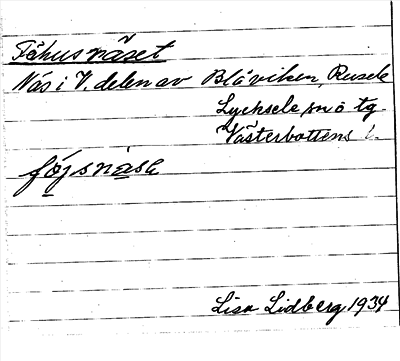 Fähusnäset
Näs i V. delen av Blåviken, Rusele
Lycksele sn o tg.
Västerbottens l.
fójsnàsa
Lisa Lidberg 1934